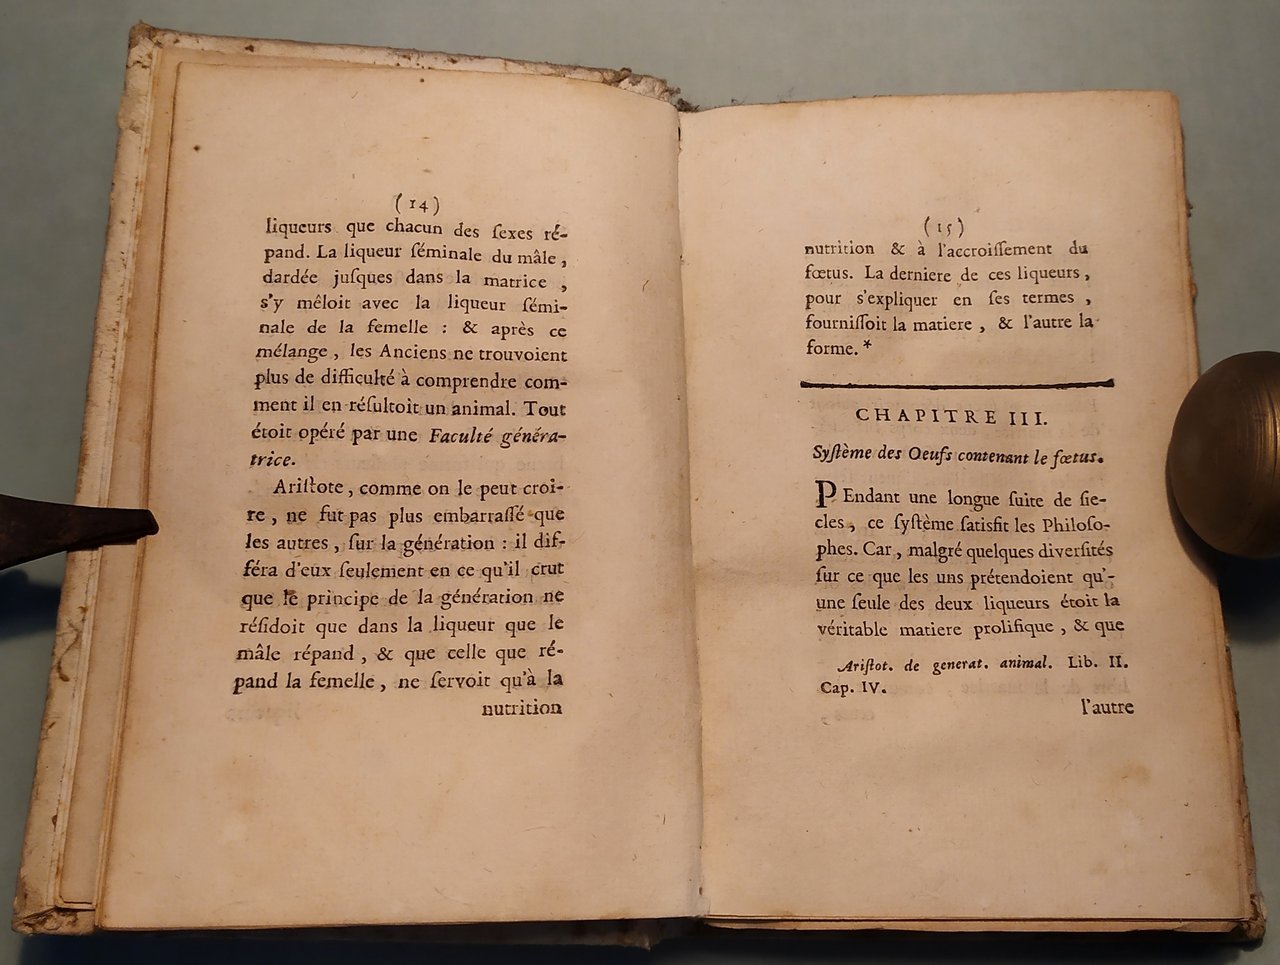 (14)
liqueurs que chacun des ſexes ré-
pand. La liqueur ſéminale du mâle ,
dardée juſques dans la matrice ,
s'y mêloit avec la liqueur ſémi-
nale de la femelle : & après ce
mélange , les Anciens ne trouvoient
plus de difficulté à comprendre com-
ment il en réſultoit un animal. Tout
étoit opéré par une Faculté généra-
trice.
Ariſtote , comme on le peut croi-
re , ne fut pas plus embarraſſé que
les autres , ſur la génération : il dif-
féra d'eux ſeulement en ce qu'il crut
que le principe de la génération ne
réſidoit que dans la liqueur que le
mâle répand , & que celle que ré-
pand la femelle , ne ſervoit qu'à la
nutrition
(15)
nutrition & à l'accroiſſement du
fœtus. La derniere de ces liqueurs ,
pour s'expliquer en ſes termes ,
fourniſſoit la matiere , & l'autre la
forme. *
CHAPITRE III.
Syſtème des Oeufs contenant le fœtus.
PEndant une longue ſuite de ſie-
cles , ce ſyſtème ſatisfit les Philoſo-
phes. Car , malgré quelques diverſités
ſur ce que les uns prétendoient qu'-
une ſeule des deux liqueurs étoit la
véritable matiere prolifique , & que
Ariſtot. de generat. animal. Lib. II.
Cap. IV.
l'autre